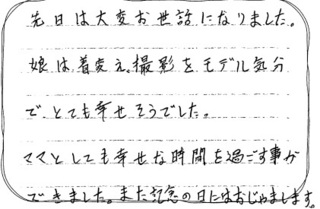 先日は大変お世話になりました。
娘は着変え、撮影をモデル気分
で、とても幸せそうでした。
ママとしても幸せな時間を過ごす事が
できました。また記念の日にはおじゃまします。